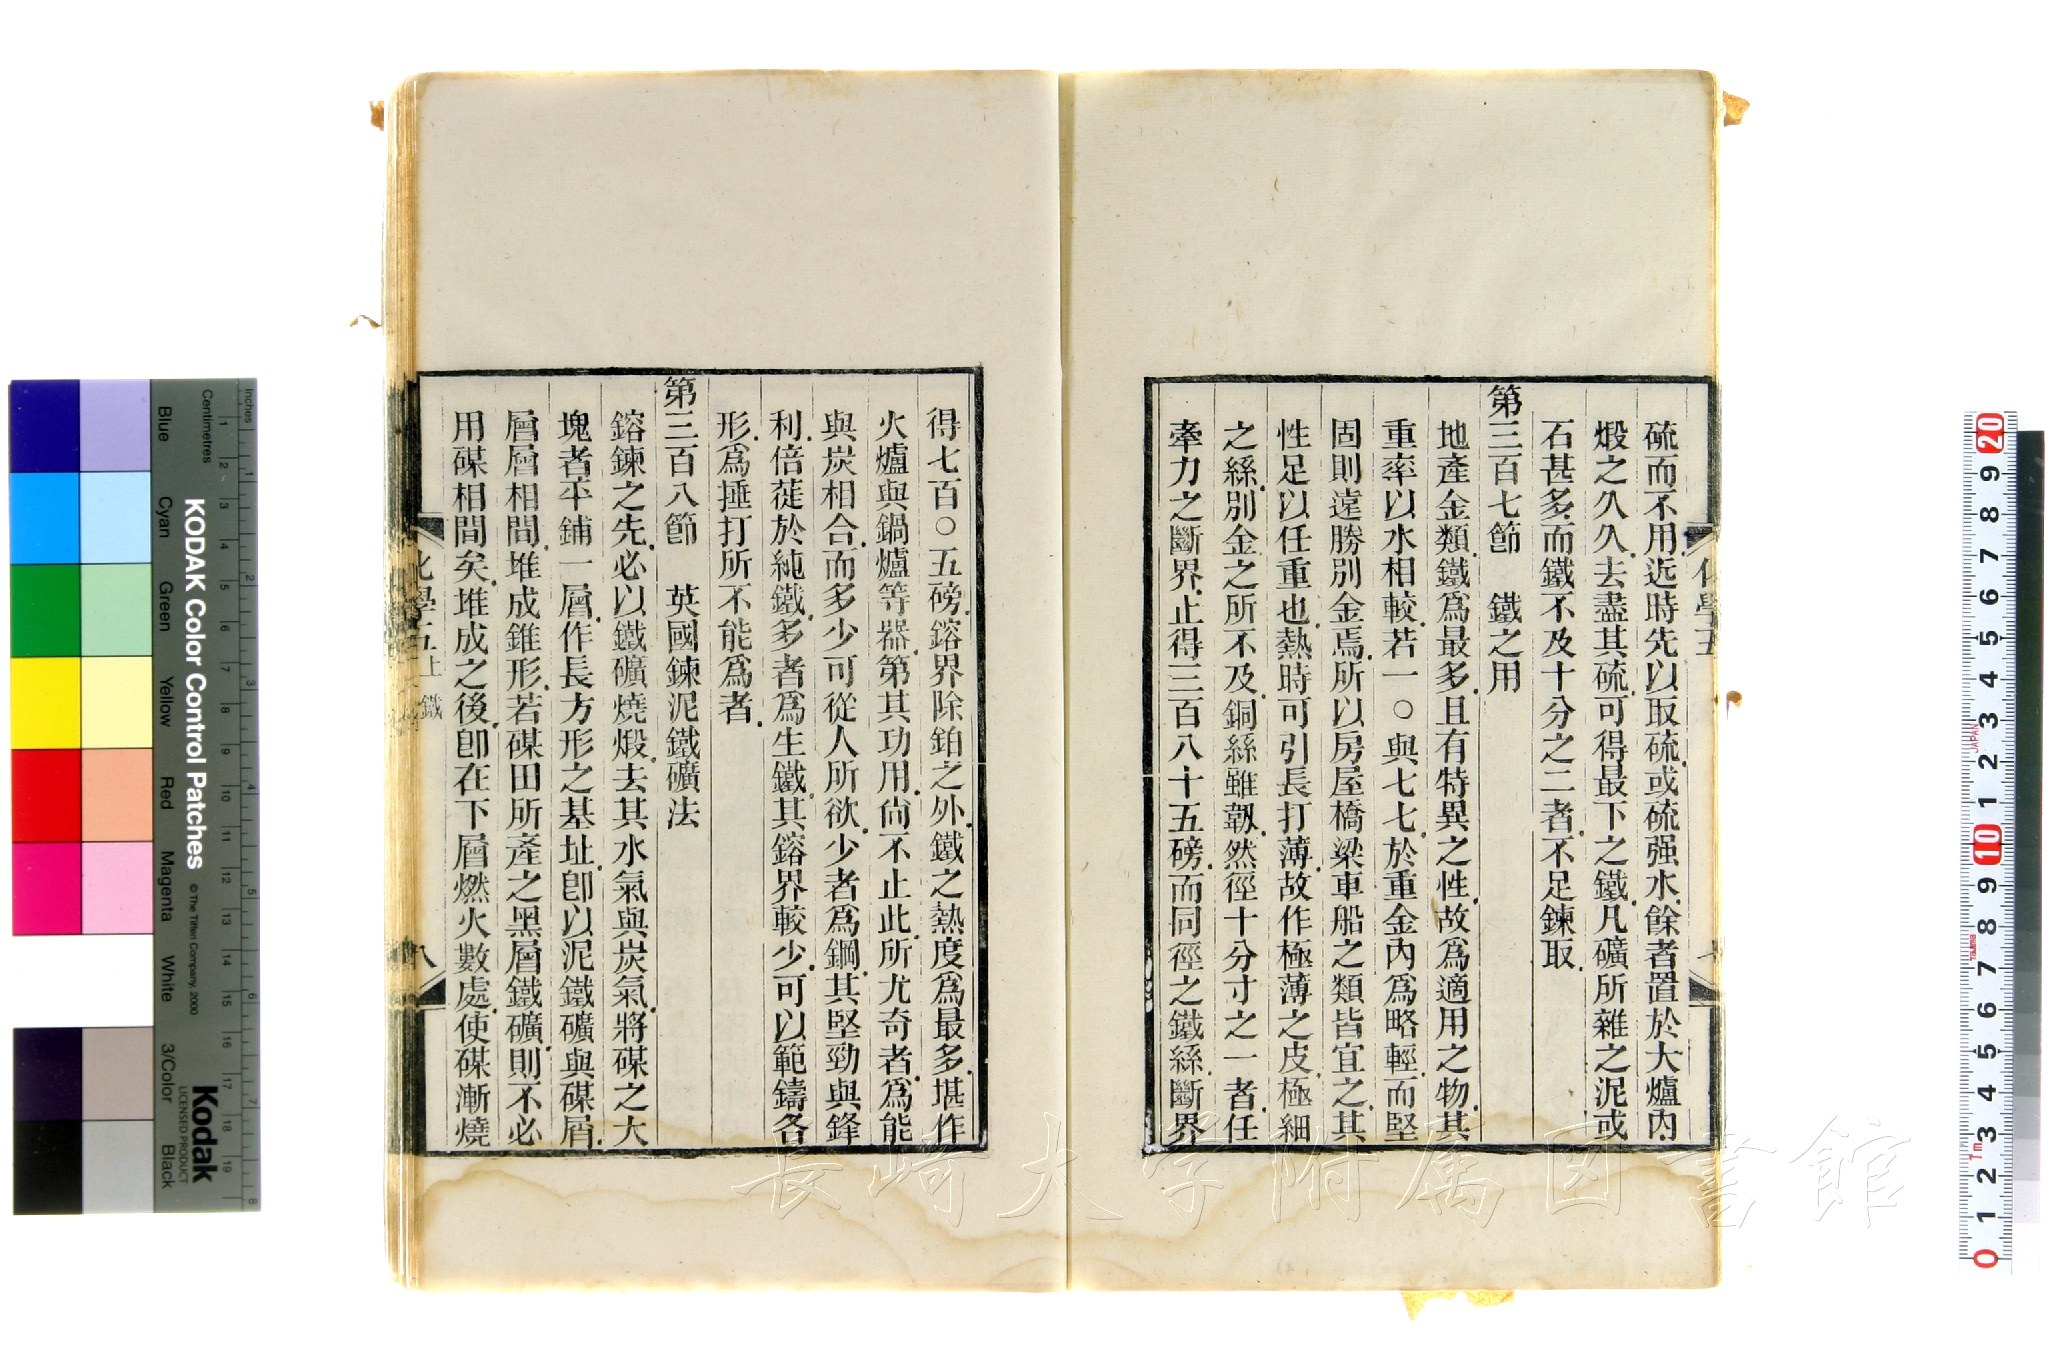 硫而不用近時先以取硫或硫强水餘者置於大爐內
煅之久久去盡其硫可得最下之鐵凡礦所雜之泥或
石甚多而鐵不及十分之二者不足鍊取
第三百七節　鐵之用
地產金類鐵爲最多且有特異之性故爲適用之物其
重率以水相較若一〇與七七於重金內爲略輕而堅
固則遠勝別金焉所以房屋橋梁車船之類皆宜之其
性足以任重也熱時可引長打薄故作極薄之皮極細
之絲別金之所不及銅絲雖韌然徑十分寸之一者任
牽力之斷界止得三百八十五磅而同徑之鐵絲斷界
得七百〇五磅鎔界除鉑之外鐵之熱度爲最多堪作
火爐與鍋爐等器第其功用尙不止此所尤奇者爲能
與炭相合而多少可從人所欲少者爲鋼其堅勁與鋒
利倍蓰於純鐵多者爲生鐵其鎔界較少可以範鑄各
形爲捶打所不能爲者
第三百八節　英國鍊泥鐵礦法
鎔鍊之先必以鐵礦燒煅去其水氣與炭氣將煤之大
塊者平鋪一層作長方形之基址卽以泥鐵礦與煤屑
層層相間堆成錐形若煤田所產之黑層鐵礦則不必
用煤相間矣堆成之後卽在下層燃火數處使煤漸燒
化學五上　鐵
八
長崎大学附属図書館
KODAK Color Control Patches
© The Tiffen Company, 2000
Kodak
LICENSED PRODUCT
Inches
Centimetres
Blue
Cyan
Green
Yellow
Red
Magenta
White
3/Color
Black
1 2 3 4 5 6 7 8 9 10 11 12 13 14 15 16 17 18 19
20 9 8 7 6 5 4 3 2 1 10 9 8 7 6 5 4 3 2 1 0
JAPAN
1m